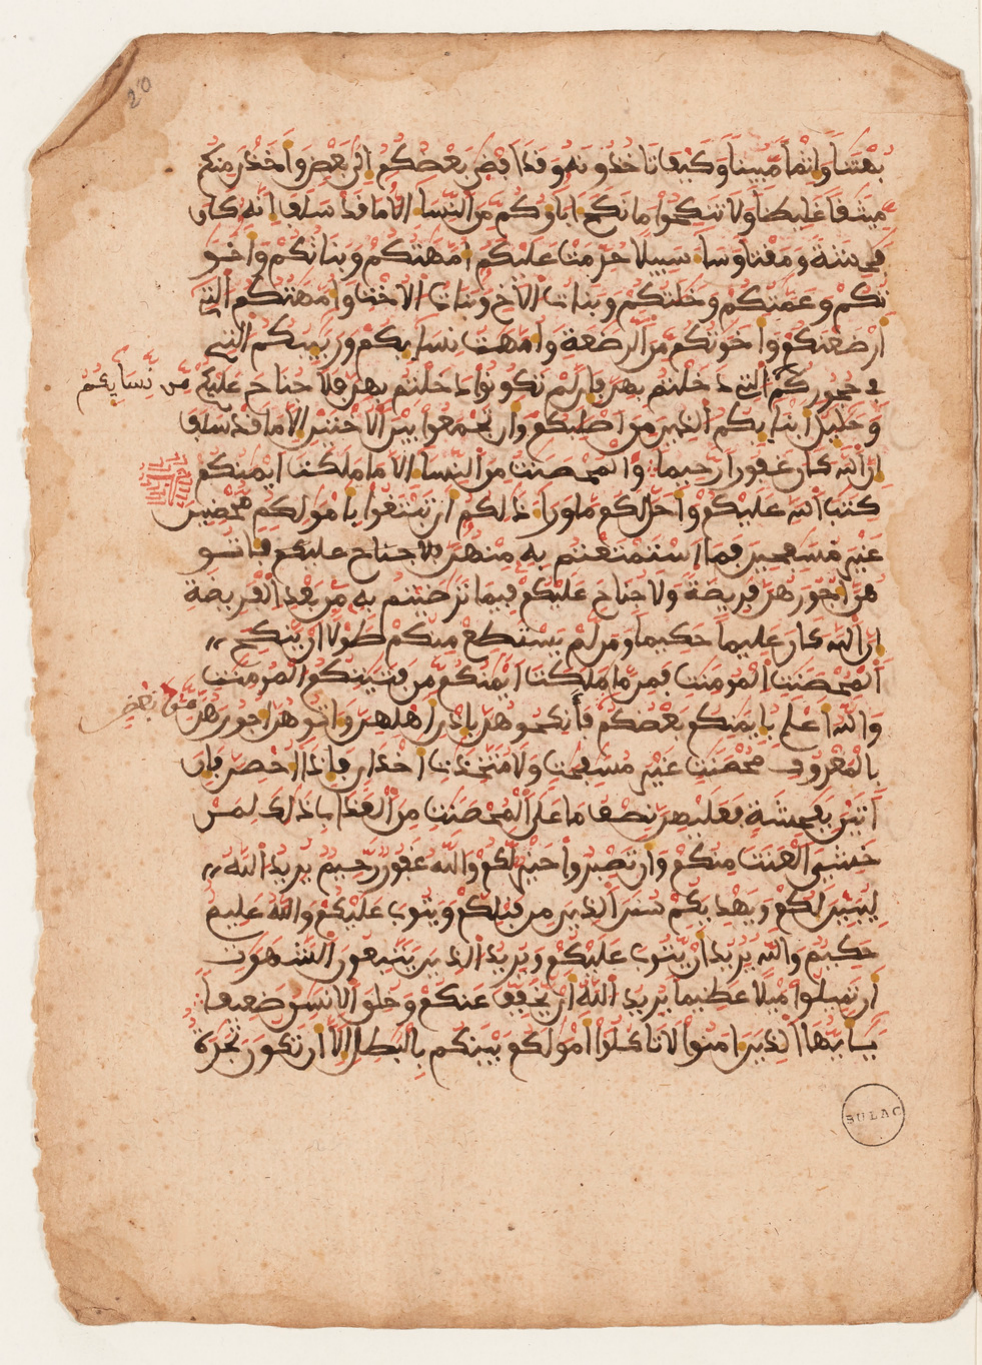 20
بُهْتَنا وَإِثْما مُّبِينا وَكَيْفَ تَاخُذُونَهُ وَقَدَ اَفْضى بَعْضُكُمُ إِلى بَعْضٍ وَأَخَذْنَ مِنكُم
مِّيثَقا غَلِيظا وَلَا تَنكِحُوا مَا نَكَحَ ءَابَاؤُكُم مِّنَ اَلنِّسَا إِلَّا مَا قَد سَلَفَ إِنَّهُ كَانَ
فَحِشَةً وَمَقْتا وَسَا سَبِيلا حُرِّمَتْ عَلَيْكُمُ أُمَّهَتُكُمْ وَبَنَاتُكُمْ وَأَخَوَ
تُكُمْ وَعَمَّتُكُمْ وَخَلَتُكُمْ وَبَنَاتُ الْأَخِ وَبَنَاتُ الْأُخْتِ وَأُمَّهَتُكُمُ التِے
أَرْضَعْنَكُمْ وَأَخَوَتُكُم مِّنَ اَلرَّضَعَةِ وَأُمَّهَتُ نِسَايِكُمْ وَرَبَيِبُكُمُ التِے
فِے حُجُورِكُم التِے دَخَلْتُم بِهِنَّ فَإِن لَّمْ تَكُونُوا دَخَلْتُم بِهِنَّ فَلَا جُنَاحَ عَلَيْكُمْ
مِّن نِّسَايِكُمُ
وَحَلَيِلُ أَبْنَايِكُمُ الذِينَ مِنَ اَصْلَبِكُمْ وَأَن تَجْمَعُوا بَيْنَ اَلْأُخْتَيْنِ إِلَّا مَا قَدْ سَلَفَ
إِنَّ اَللَّهَ كَانَ غَفُورا رَّحِيما وَالْمُحْصَنَتُ مِنَ اَلنِّسَا إِلَّا مَا مَلَكَتَ اَيْمَنُكُمْ
كِتَبَ اَللَّهِ عَلَيْكُمْ وَأَحَلَّ لَكُم مَّا وَرَا ذَلِكُمُ أَن تَبْتَغُوا بِأَمْوَلِكُم مُّحْصِنِينَ
غَيْرَ مُسَفِحِينَ فَمَا اَسْتَمْتَعْتُم بِهِ مِنْهُنَّ فَلَا جُنَاحَ عليكم فَـَاتُو
هُنَّ أُجُورَهُنَّ فَرِيضَةً وَلَا جُنَاحَ عَلَيْكُمْ فِيمَا تَرَضَيْتُم بِهِ مِنۢ بَعْدِ اِلْفَرِيضَةِ
إِنَّ اَللَّهَ كَانَ عَلِيماً حَكِيماً وَمَن لَّمْ يَسْتَطِعْ مِنكُمْ طَوْلاً اَن يَّنكِحَ
اَلْمُحْصَنَتِ الْمُومِنَتِ فَمِن مَّا مَلَكَتَ اَيْمَنُكُم مِّن فَتَيَتِكُمُ الْمُومِنَتِ
وَاللَّهُ أَعْلَمُ بِإِيمَنِكُم بَعْضُكُم فَانكِحُوهُنَّ بِإِذْنِ أَهْلِهِنَّ وَءَاتُوهُنَّ أُجُورَهُنَّ
مِّنۢ بَعْضٍ
بِالْمَعْرُوفِ مُحْصَنَتٍ غَيْرَ مُسَفِحَتٍ وَلَا مُتَّخِذَتِ أَخْدَانٍ فَإِذَا أُحْصِنَّ فَإِنَ
اَتَيْنَ بِفَحِشَةٍ فَعَلَيْهِنَّ نِصْفُ مَا عَلَى اَلْمُحْصَنَتِ مِنَ اَلْعَذَابِ ذَلِكَ لِمَنْ
خَشِيَ اَلْعَنَتَ مِنكُمْ وَأَن تَصْبِرُوا خَيْرٌ لَّكُمْ وَاللَّهُ غَفُورٌ رَّحِيمٌ يُرِيدُ اُللَّهُ
لِيُبَيِّنَ لَكُمْ وَيَهْدِيَكُمْ سُنَنَ اَلذِينَ مِن قَبْلِكُمْ وَيَتُوبَ عَلَيْكُمْ وَاللَّهُ عَلِيمٌ
حَكِيمٌ وَاللَّهُ يُرِيدُ أَن يَّتُوبَ عَلَيْكُمْ وَيُرِيدُ الذِينَ يَتَّبِعُونَ اَلشَّهَوَتِ
أَن تَمِيلُوا مَيْلاً عَظِيماً يُرِيدُ اللَّهُ أَن يُّخَفِّفَ عَنكُمْ وَخُلِقَ اَلِانسَنُ ضَعِيفاً
يَأَيُّهَا اَلذِينَ ءَامَنُوا لَا تَاكُلُوا أَمْوَلَكُم بَيْنَكُم بِالْبَطِلِ إِلَّا أَن تَكُونَ تِجَرَةٌ
BULAC